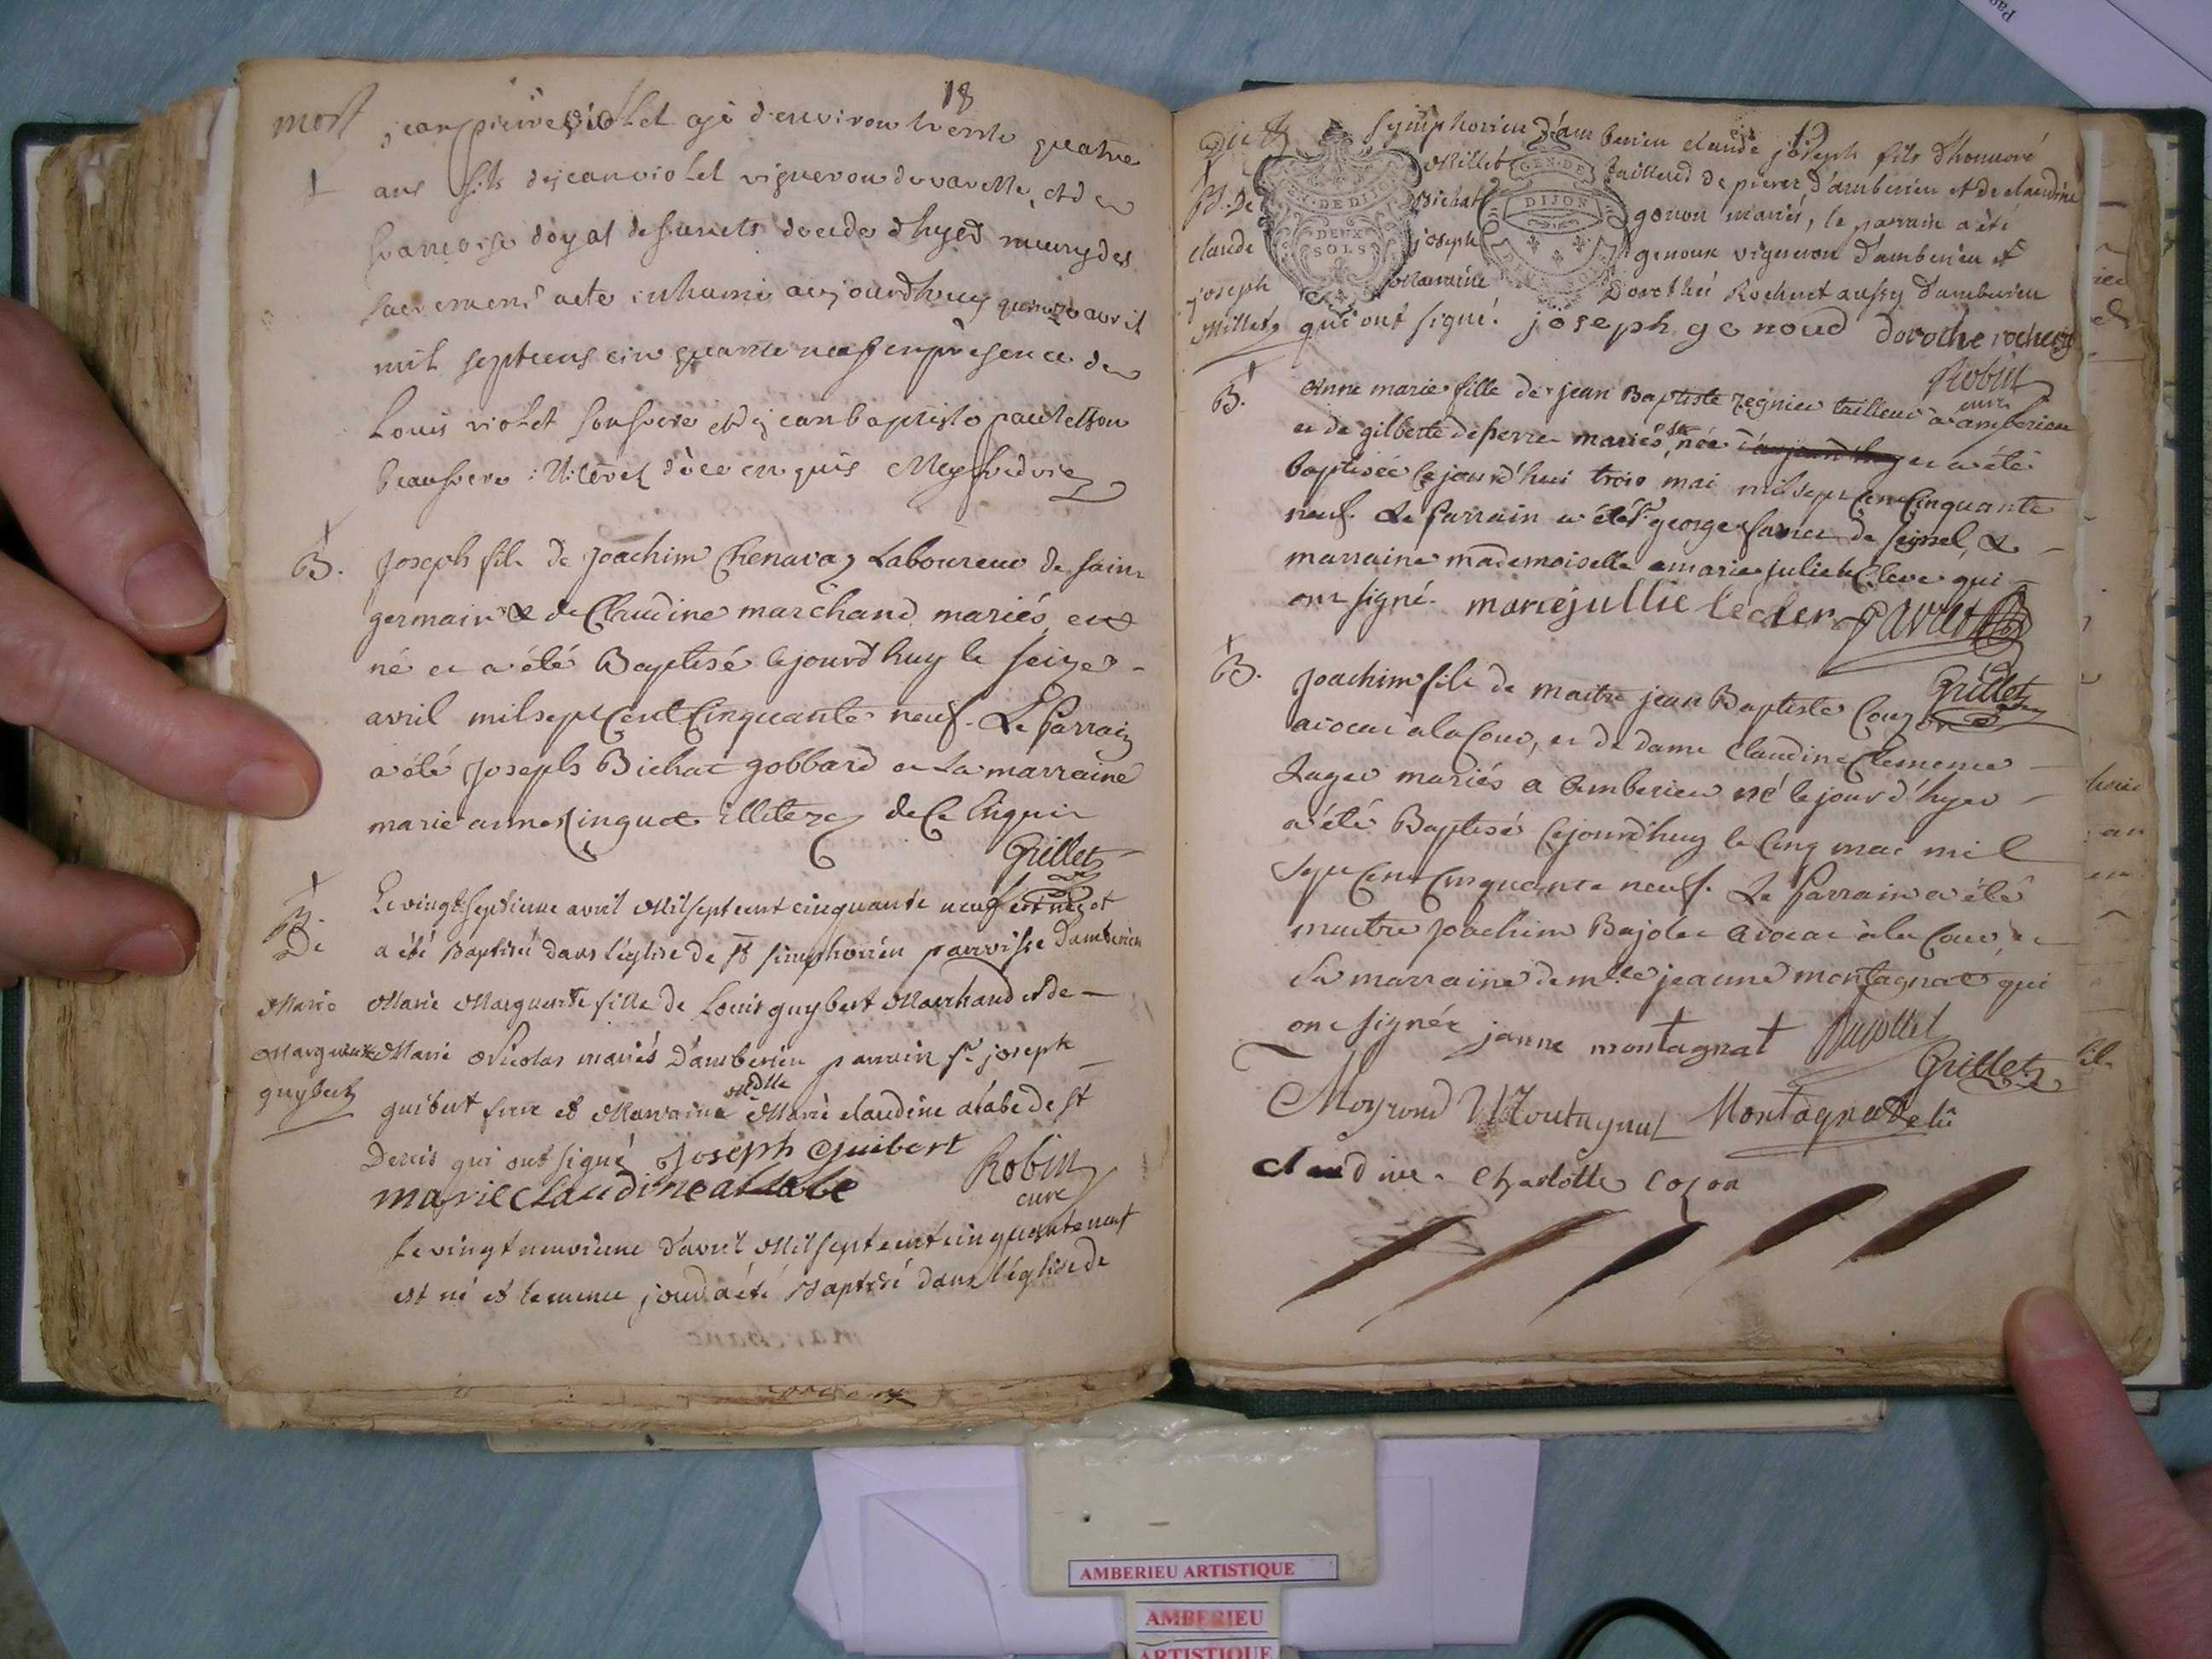 18
mort
jean pierre violet agé d'environ trente quatre
ans fils de jean violet vigneron de vareille, et de
francoise doyat defunets decede d'hyed muny des
sacremens a ete inhumé aujourdhuy quinze avril
mil septcens cinquante neuf en presence de
Louis violet son frere et de jean baptiste paul et son
beaufrere
B.
Joseph fils de Joachim Chenavaz Laboureur de saint
germain & de Claudine marchand mariés, est
né et a été Baptisé lejourdhuy le seize
avril mil sept Cent Cinquante neuf. Le Parrain
a été Joseph Bichat gobbard et La marraine
marie anne
Grillet
B.
De
Marie
Marguerite
guybert
Le vingt septieme avril Mil sept cent cinquante neuf est née et
a été Baptisé dans léglise de st simphorien parroisse Damberieu
Marie Marguerite fille de Louis guybert Marchand et de
Marie Nicolas mariés D'amberieu parrain sr joseph
guibert frere et Marraine Mdlle Marie claudine alabe de st
Denis qui ont signé Joseph Guibert
marie claudine allabe
Robin
curé
Le vingt neuvieme d'avril Mil sept cent cinquante neuf
est né et le meme jour a été Baptisé dans l'église de
19
GEN. DE DIJON
DEUX
SOLS
GEN. DE
DIJON
B. De
claude
joseph
Millet
Symphorien d'amberieu claude joseph fils d'honnoré
Millet tailleud de pierre d'amberieu et de claudine
Bichat gonon mariés, le parrain a été
joseph genoux vigneron d'amberieu et
Marraine Dorothée Rochent aussy d'amberieu
qui ont signé. joseph genoud
Robin
curé
B.
Anne marie fille de jean Baptiste regnier tailleur a amberieu
et de gilberte deperre mariés, née et a été
baptisée cejourd'hui trois mai mil sept Cent Cinquante
neuf. Le Parrain a été sr george favier de seissel, &
marraine mademoiselle
ont signé. marie jullie
Grillet
B.
Joachim fils de maitre jean Baptiste Couzon
avocat a la Cour, et de dame Claudine Clemence
mariés a amberieu né le jour d'hyer
a été Baptisé Cejourd'huy le Cinq mai mil
sept Cent Cinquante neuf. Le Parrain a été
maitre Joachim Bajolet avocat a la Cour et
La marraine demlle jeanne montagnat qui
ont signéz janne montagnat Bajollet
Grillet
Moyrond Montagnat Montagnat
claudine Charlotte cozon
AMBERIEU ARTISTIQUE
AMBERIEU
ARTISTIQUE